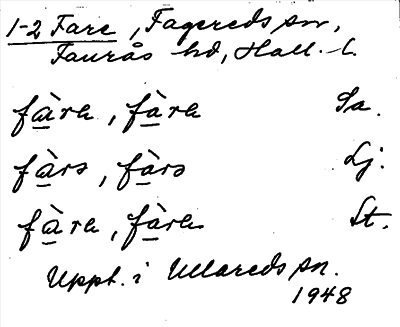 1-2 Fare, Fagereds sn,
Faurås hd, Hall. l.
fàra, fàra Sa.
fàrs, fàrs Lj.
fàra, fàra St.
Uppt. i Ullareds sn.
1948